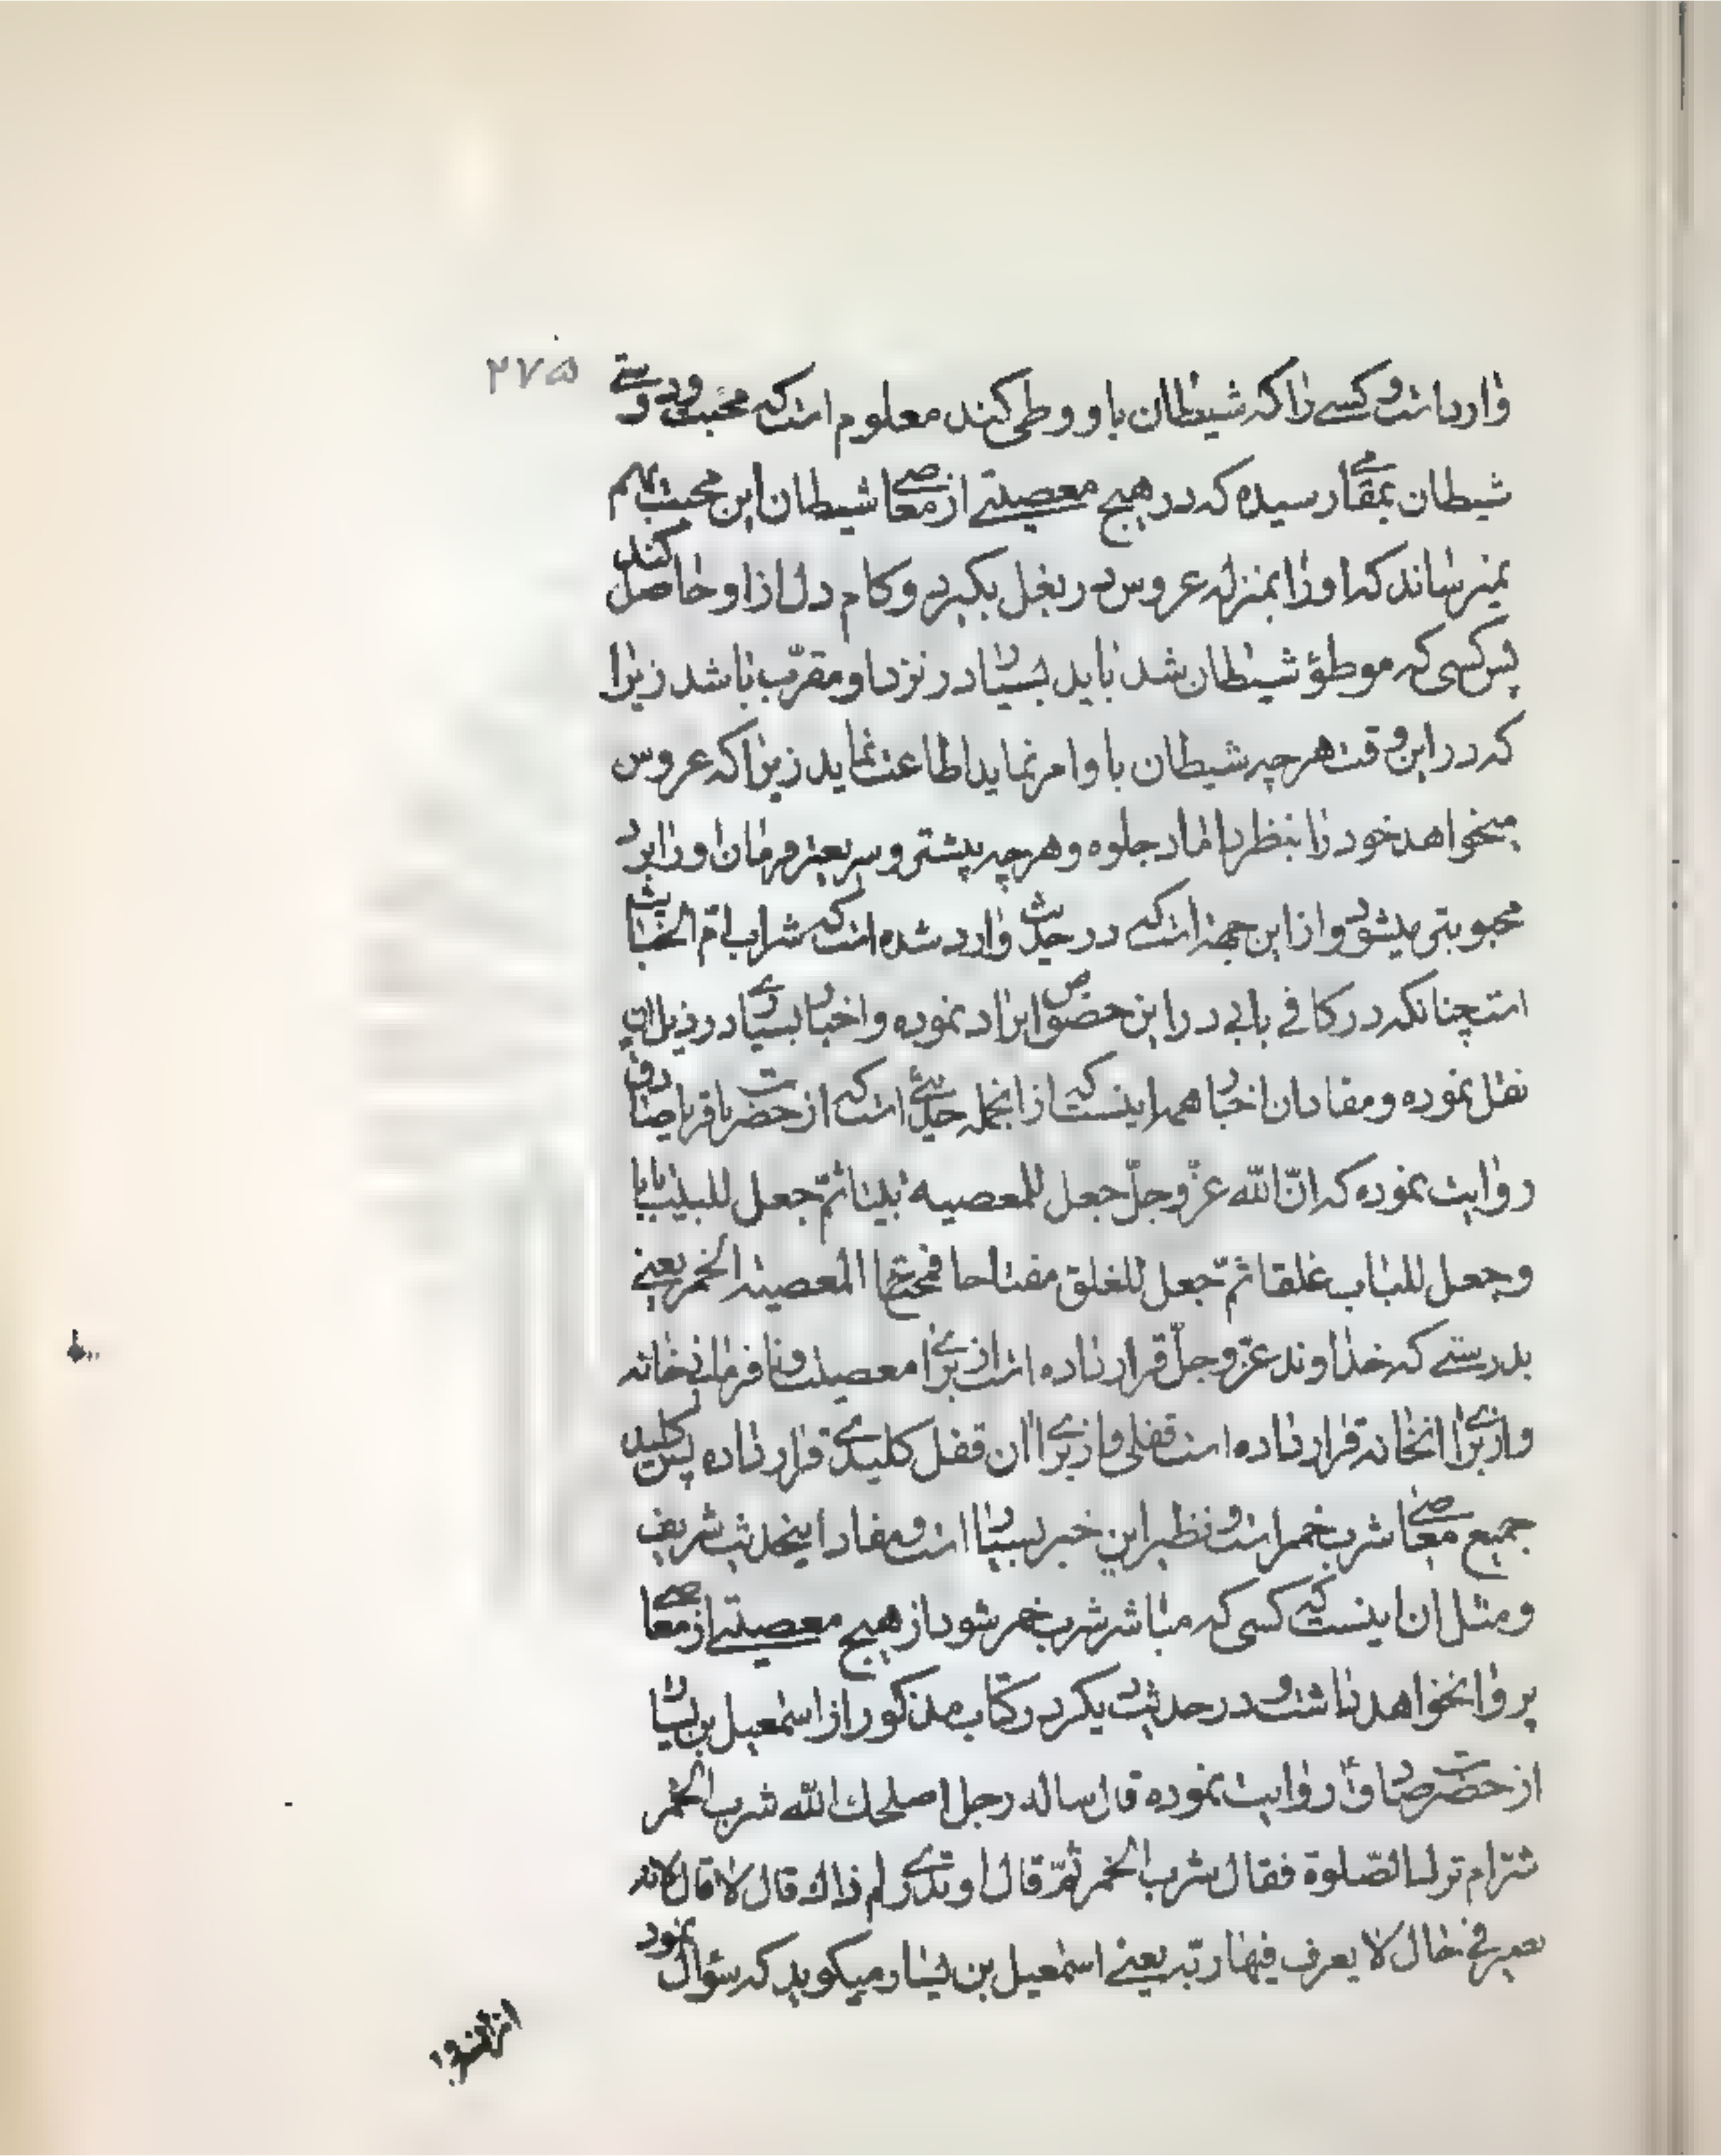 ۲۷۵
وارد است و کسے را که شیطان با و وطی کند معلوم است که محبت و دوستے
شیطان بمقامے رسیده که در هیچ معصیتے از معاصے شیطان این محبت بهم
نمیرساند که او را بمنزله عروس در بغل بگیرد و کام دل از او حاصل کند
پس کسی که موطؤ شیطان شد باید بسیار در نزد او مقرّب باشد زیرا
که در این وقت هر چه شیطان با و امر نماید اطاعت نماید زیرا که عروس
میخواهد خود را بنظر داماد جلوه دهد هر چه پیشتر و سریعتر فرمان او را برد
محبوبتر میشود و از این جهة است که در حدیث وارد شده است که شراب امّ الخبائث
است چنانکه در کافے بابے در این خصوص ایراد نموده و اخبار بسیارے در ذیل ان
نقل نموده و مفاد ان اخبار همه اینست که از انجمله حدیثے است که از حضرت باقر یا صادق
روایت نموده که انّ الله عزّ وجلّ جعل للمعصیه بیتا ثمّ جعل للبیت بابا
وجعل للباب غلقا ثمّ جعل للغلق مفتاحا فمفتاح المعصیة الخمر یعنے
بدرستے که خداوند عزّ وجلّ قرار داده است از براے معصیت و نافرمانے خانه
و از براے انخانه قرار داده است قفلی و از براے ان قفل کلیدے قرار داده پس کلید
جمیع معاصے شرب خمر است و نظیر این خبر بسیار است و مفاد اینحدیث شریف
و مثل ان اینست که کسی که مباشر شرب خمر شود از هیچ معصیتے از معاصے
پروا نخواهد داشت و در حدیث دیگر در کتاب مذکور از اسمعیل بن یسار
از حضرت صادق روایت نموده قال ساله رجل اصلحك الله شرب الخمر
شرّ ام ترك الصّلوة فقال شرب الخمر ثمّ قال او تدرے لم ذاك قال لا قال لانه
یصیر فے حال لا یعرف فیها ربّه یعنے اسمعیل بن یسار میکوید که سؤال نمود